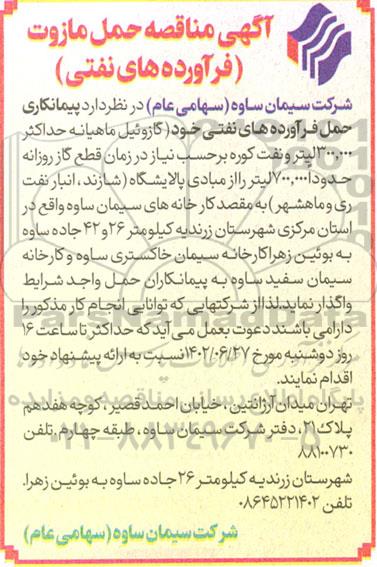 آگهی مناقصه حمل مازوت
(فرآورده های نفتی)
شرکت سیمان ساوه (سهامی عام) در نظر دارد پیمانکاری
حمل فرآورده های نفتی خود (گازوئیل ماهیانه حداکثر
۳۰۰,۰۰۰ لیتر و نفت کوره برحسب نیاز در زمان قطع گاز روزانه
حدودا ۷۰۰,۰۰۰ لیتر را از مبادی پالایشگاه (شازند، انبار نفت
ری و ماهشهر) به مقصد کارخانه های سیمان ساوه واقع در
استان مرکزی شهرستان زرندیه کیلومتر ۲۶ و ۴۲ جاده ساوه
به بوئین زهرا کارخانه سیمان خاکستری ساوه و کارخانه
سیمان سفید ساوه به پیمانکاران حمل واجد شرایط
واگذار نماید. لذا از شرکتهایی که توانایی انجام کار مذکور را
دارا می باشند دعوت بعمل می آید که حداکثر تا ساعت ۱۶
روز دوشنبه مورخ ۱۴۰۲/۰۶/۲۷ نسبت به ارائه پیشنهاد خود
اقدام نمایند.
تهران میدان آرژانتین، خیابان احمد قصیر، کوچه هفدهم
پلاک ۲۱، دفتر شرکت سیمان ساوه، طبقه چهارم. تلفن
۸۸۱۰۰۷۳۰
شهرستان زرندیه کیلومتر ۲۶ جاده ساوه به بوئین زهرا.
تلفن ۰۸۶۴۵۲۲۱۴۰۲
شرکت سیمان ساوه (سهامی عام)
۰۲۱-۸۸۳۴۹۶۷۰-۵